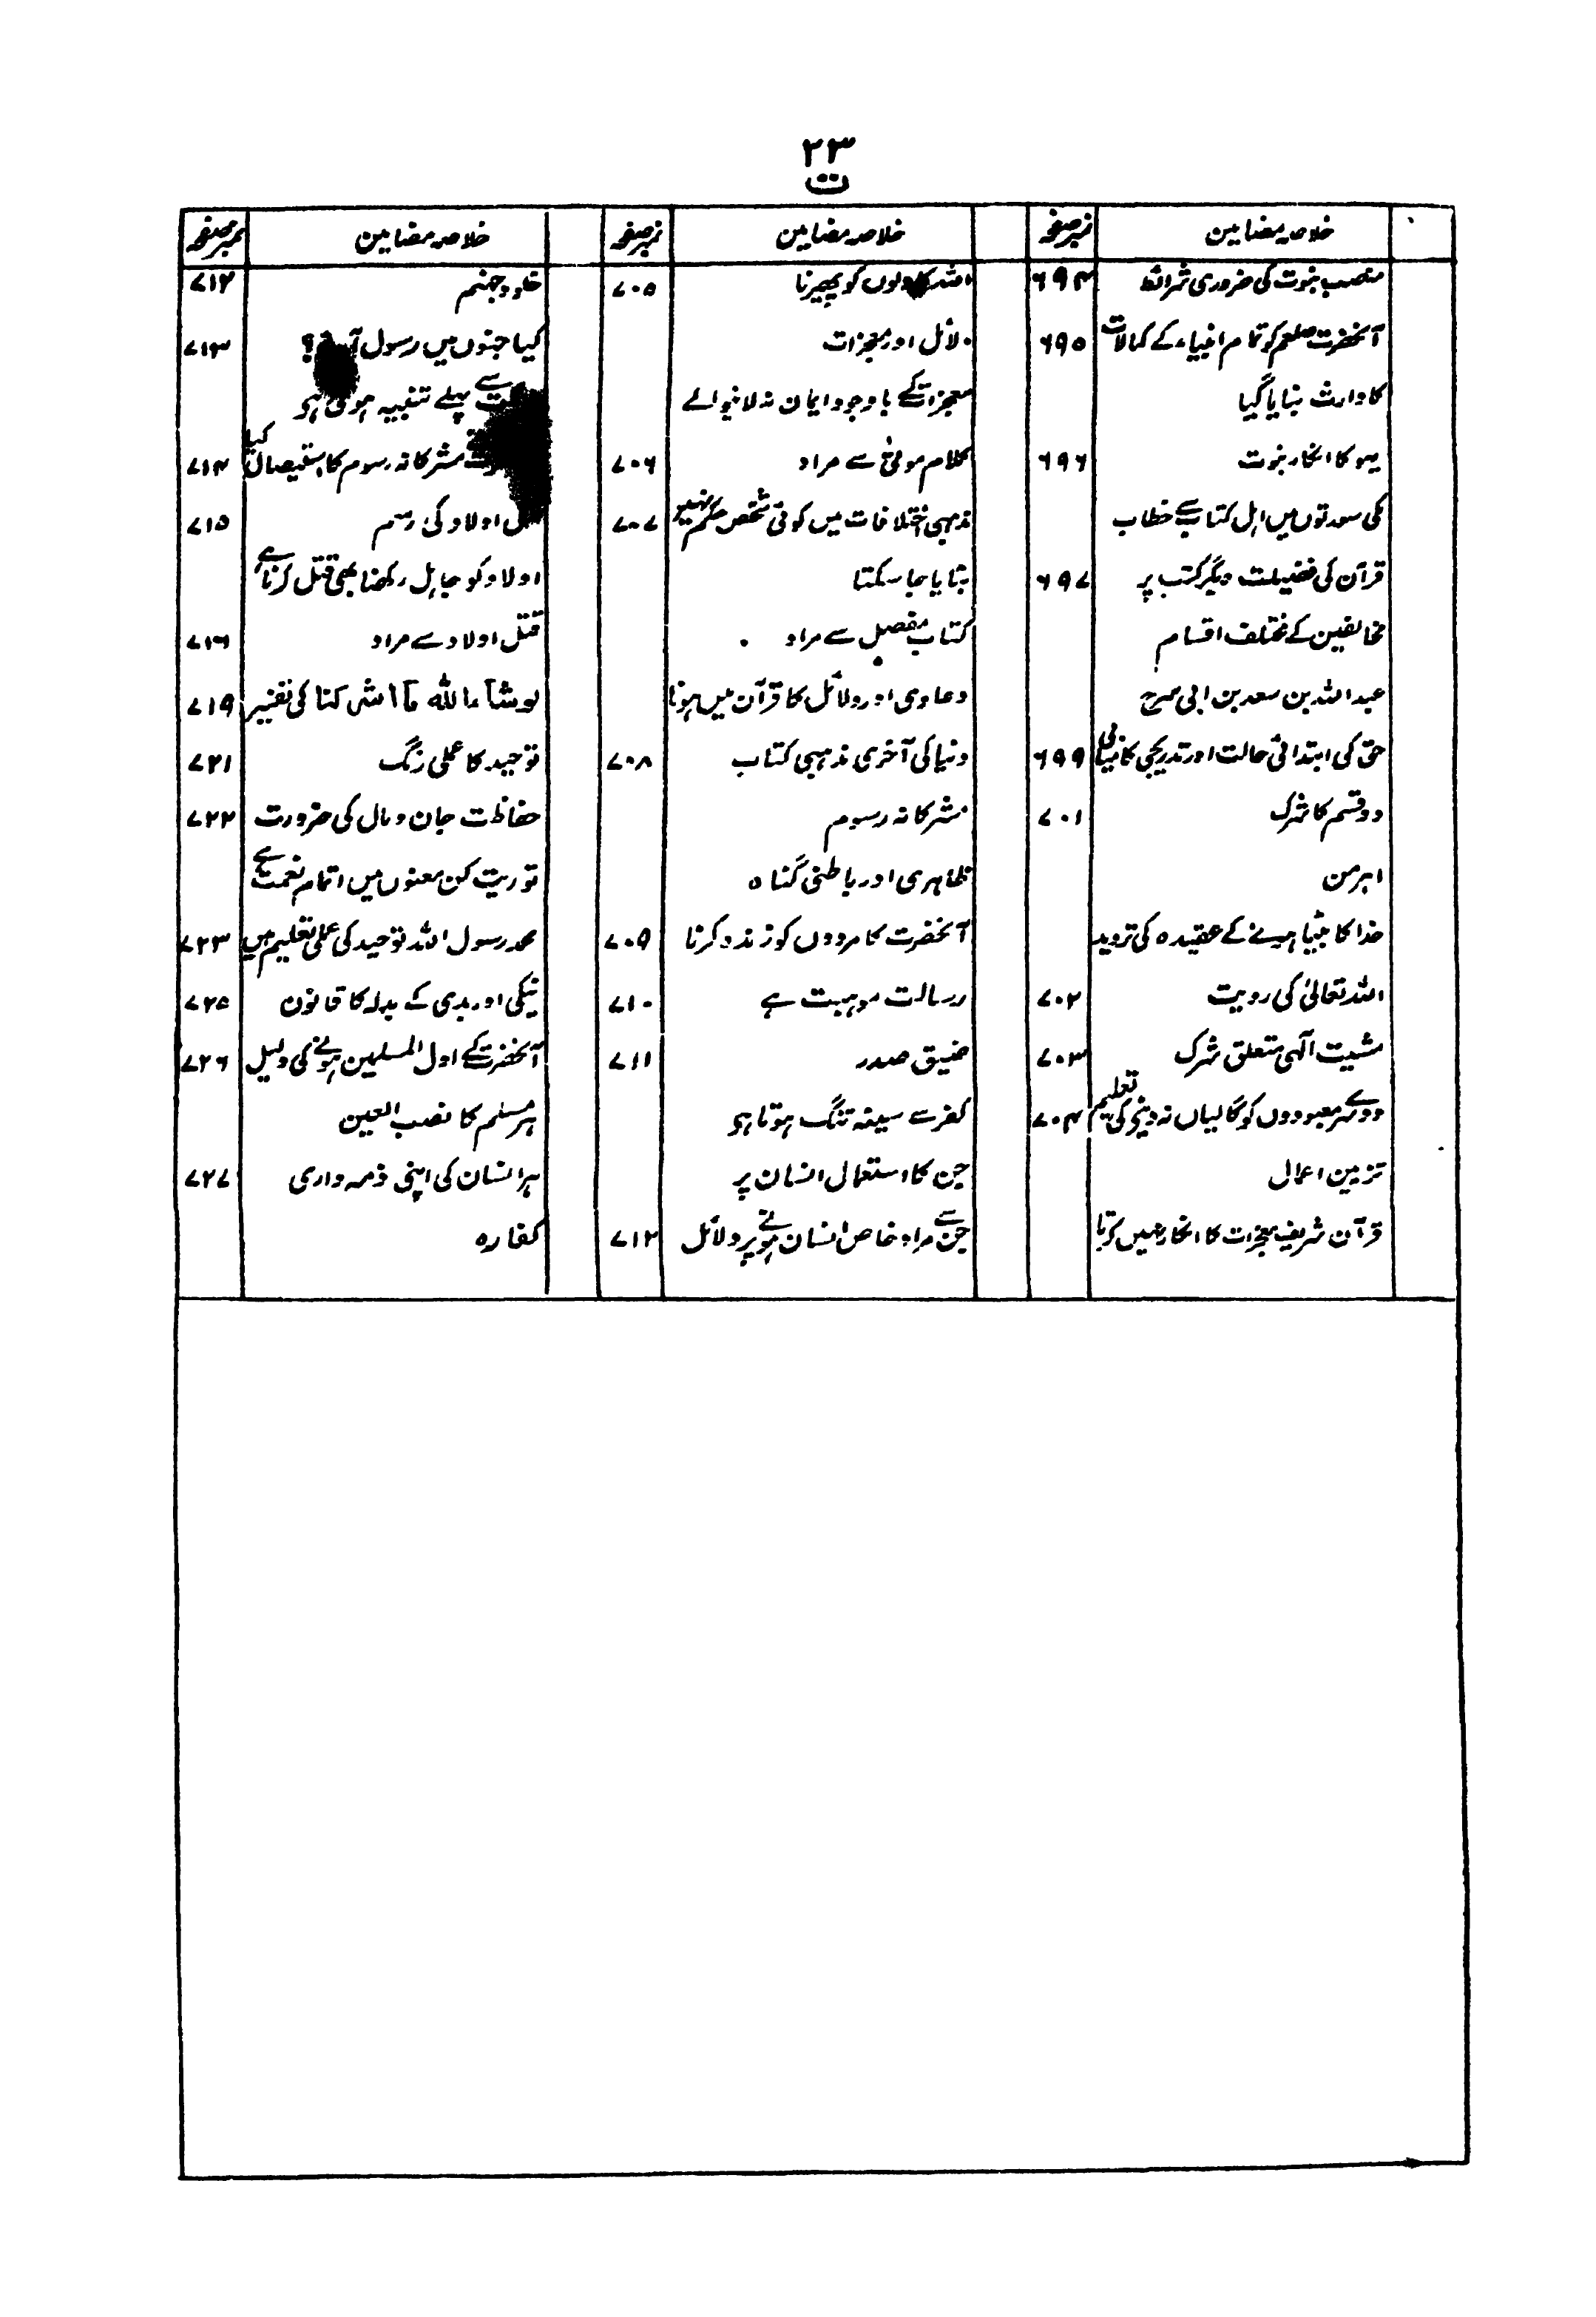 ۲۳
ت
خلاصہ مضامین نمبر صفحہ
منصب نبوت کی ضروری شرائط ۶۹۴
آنحضرت صلعم کو تمام انبیاء کے کمالات ۶۹۵
کا وارث بنایا گیا
یہود کا انکار نبوت ۶۹۶
مکی سورتوں میں اہل کتاب سے خطاب
قرآن کی فضیلت دیگر کتب پر ۶۹۷
مخالفین کے مختلف اقسام
عبداللہ بن سعد بن ابی سرح
حق کی ابتدائی حالت اور تدریجی کامیابی ۶۹۹
دو قسم کا شرک ۷۰۱
اہرمن
خدا کا بیٹا ہونے کے عقیدہ کی تردید
اللہ تعالیٰ کی رویت ۷۰۲
مشیت الٰہی متعلق شرک ۷۰۳
دوسرے معبودوں کو گالیاں نہ دینے کی تعلیم ۷۰۴
تزیین اعمال
قرآن شریف معجزات کا انکار نہیں کرتا
خلاصہ مضامین نمبر صفحہ
اللہ کا دلوں کو پھیرنا ۷۰۵
دلائل اور معجزات
معجزات کے باوجود ایمان نہ لانیوالے
کلام موتیٰ سے مراد ۷۰۶
مذہبی اختلافات میں کوئی شخص حکم نہیں ۷۰۷
بنایا جا سکتا
کتاب مفصل سے مراد
دعاوی اور دلائل کا قرآن میں ہونا
دنیا کی آخری مذہبی کتاب ۷۰۸
مشرکانہ رسوم
ظاہری اور باطنی گناہ
آنحضرت کا مردوں کو زندہ کرنا ۷۰۹
رسالت موہبت ہے ۷۱۰
ضیق صدر ۷۱۱
کفر سے سینہ تنگ ہوتا ہو
جن کا استعمال انسان پر
جن سے مراد خاص انسان ہونے پر دلائل ۷۱۲
خلاصہ مضامین نمبر صفحہ
خلود جہنم ۷۱۲
کیا جنوں میں رسول ؟ ۷۱۳
سے پہلے تنبیہ ہوتی ہو
مشرکانہ رسوم کا استیصال کیا ۷۱۴
اولاد کی رسم ۷۱۵
اولاد کو جاہل رکھنا بھی قتل کرنا ہے
قتل اولاد سے مراد ۷۱۶
لوشآء اللہ مآ اشرکنا کی تفسیر ۷۱۹
توحید کا عملی رنگ ۷۲۱
حفاظت جان و مال کی ضرورت ۷۲۲
توریت کن معنوں میں اتمام نعمت ہے
محمد رسول اللہ توحید کی عملی تعلیم ہیں ۷۲۳
نیکی اور بدی کے بدلہ کا قانون ۷۲۵
آنحضرت کے اول المسلمین ہونے کی دلیل ۷۲۶
ہر مسلم کا نصب العین
ہر انسان کی اپنی ذمہ داری ۷۲۷
کفارہ